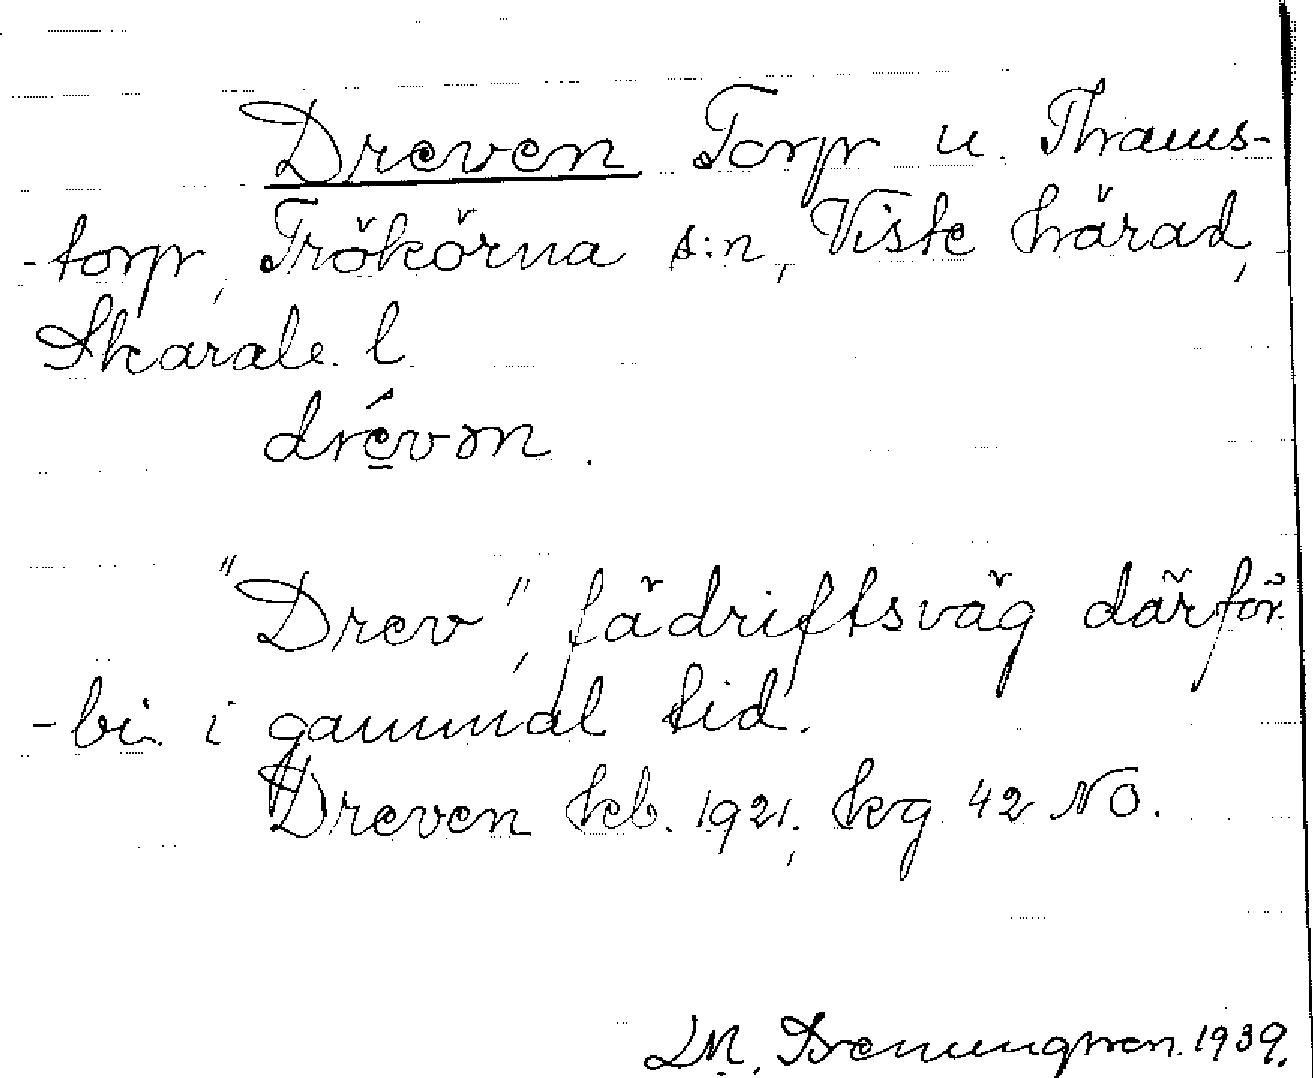 Dreven Torp u. Thams-
-torp, Trökörna s:n, Viste härad,
Skarab. l.
drévon.
"Drev", fädriftsväg därför-
-bi i gammal tid.
Dreven kb. 1921, kg 42 NO.
1939.